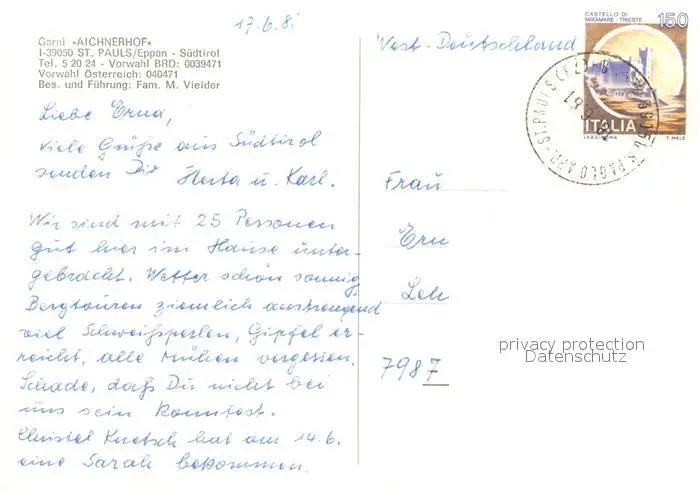 17.6.8
Garni »AICHNERHOF«
I-39050 ST. PAULS/Eppan - Südtirol
Tel. 5 20 24 - Vorwahl BRD: 0039471
Vorwahl Österreich: 040471
Bes. und Führung: Fam. M. Vieider
Liebe Erna,
viele Grüße aus Südtirol
senden Dir Herta u. Karl.
Wir sind mit 25 Personen
gut hier im Hause unter-
gebracht. Wetter schön sonnig,
Bergtouren ziemlich anstrengend
viel Schweißperlen, Gipfel er-
reicht, alle Mühen vergessen.
Schade, daß Du nicht bei
uns sein konntest.
Christel hat am 14.6.
eine Sarah bekommen.
West-Deutschland
CASTELLO DI
MIRAMARE - TRIESTE
150
ITALIA
I.P.Z.S. ROMA
T. MELE
S. PAOLO APP. - ST. PAULS (BZ)
Frau
Ern
Leh
7987
privacy protection
Datenschutz